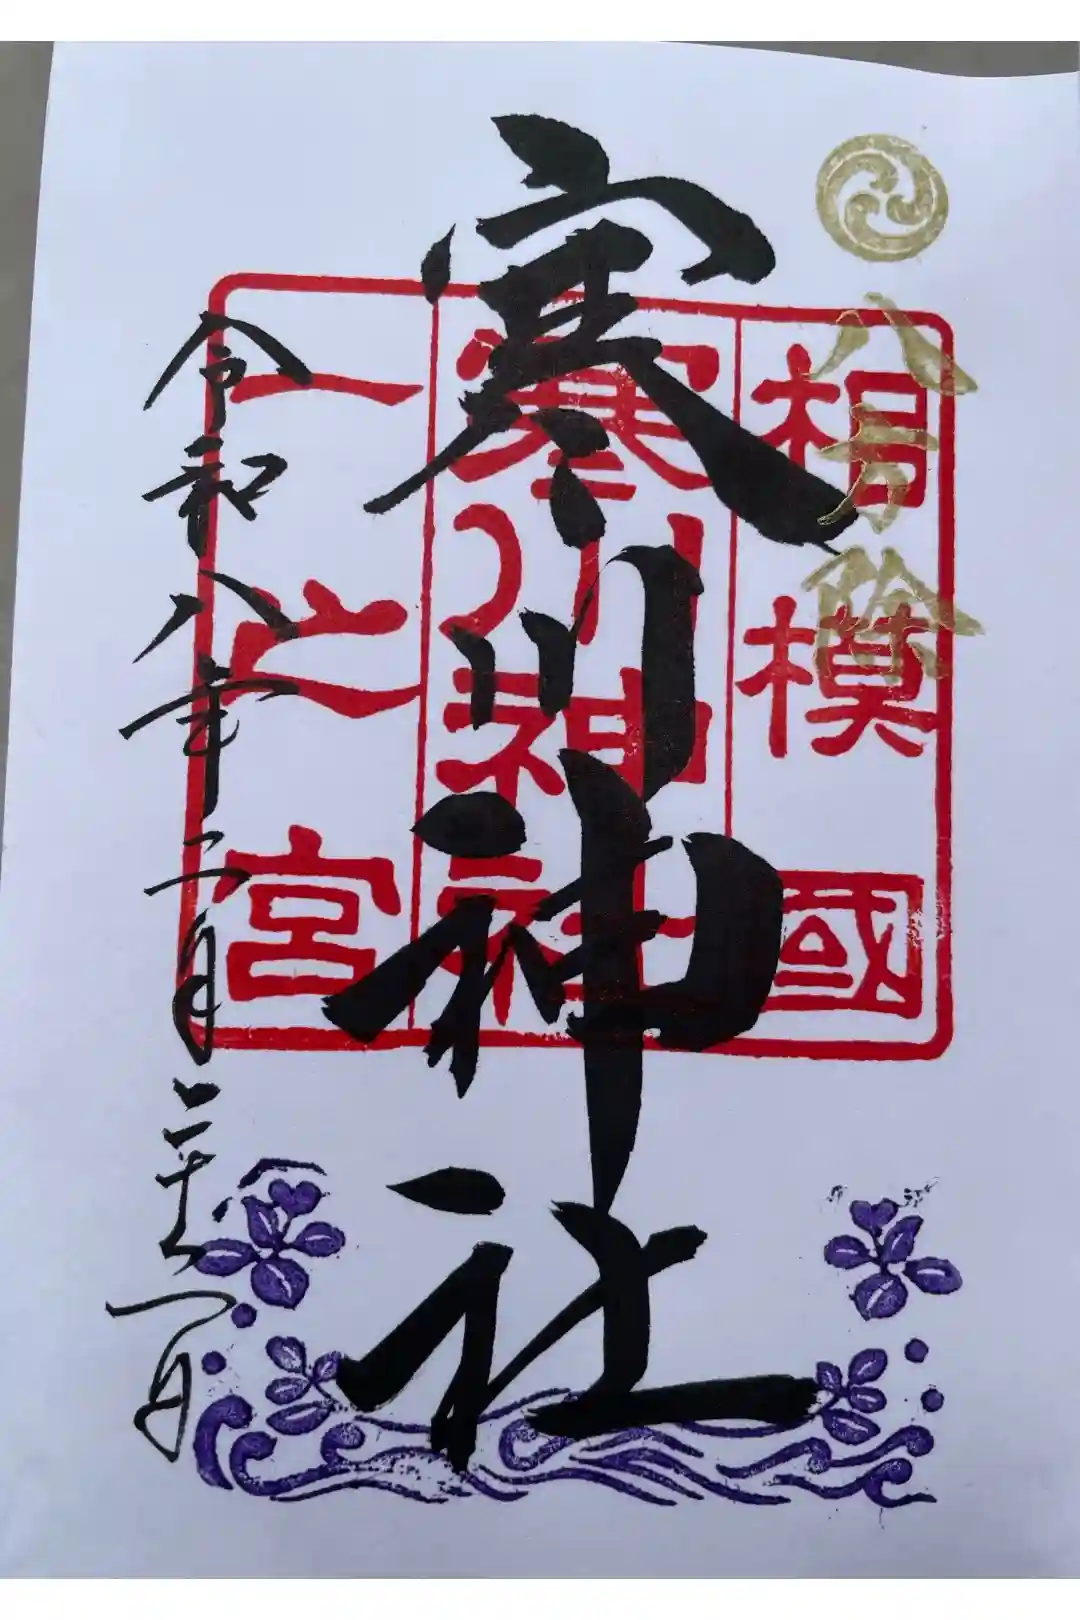 八方除
相模國
寒川神社
一之宮
寒川神社
令和八年二月二十 日